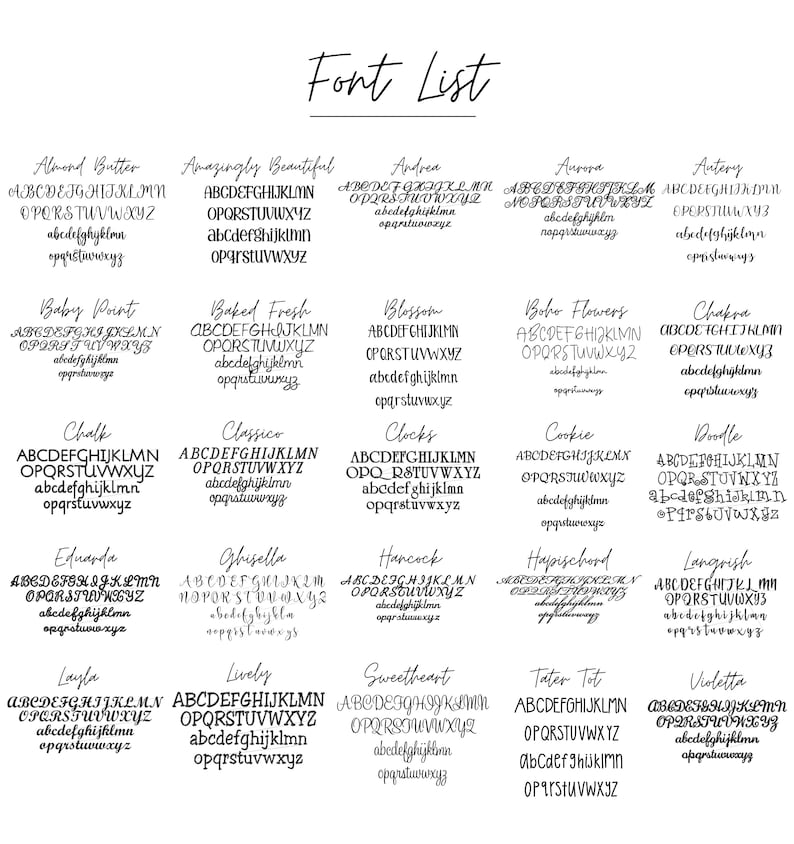 Font List
Almond Butter
ABCDEFGHIJKLMN
OPQRSTUVWXYZ
abcdefghijklmn
opqrstuvwxyz
Amazingly Beautiful
ABCDEFGHIJKLMN
OPQRSTUVWXYZ
abcdefghijklmn
opqrstuvwxyz
Andrea
ABCDEFGHIJKLMN
OPQRSTUVWXYZ
abcdefghijklmn
opqrstuvwxyz
Aurora
ABCDEFGHIJKLM
NOPQRSTUVWXYZ
abcdefghijklm
nopqrstuvwxyz
Autery
ABCDEFGHIJKLMN
OPQRSTUVWXYZ
abcdefghijklmn
opqrstuvwxyz
Baby Point
ABCDEFGHIJKLMN
OPQRSTUVWXYZ
abcdefghijklmn
opqrstuvwxyz
Baked Fresh
ABCDEFGHIJKLMN
OPQRSTUVWXYZ
abcdefghijklmn
opqrstuvwxyz
Blossom
ABCDEFGHIJKLMN
OPQRSTUVWXYZ
abcdefghijklmn
opqrstuvwxyz
Boho Flowers
ABCDEFGHIJKLMN
OPQRSTUVWXYZ
abcdefghijklmn
opqrstuvwxyz
Chakra
ABCDEFGHIJKLMN
OPQRSTUVWXYZ
abcdefghijklmn
opqrstuvwxyz
Chalk
ABCDEFGHIJKLMN
OPQRSTUVWXYZ
abcdefghijklmn
opqrstuvwxyz
Classico
ABCDEFGHIJKLMN
OPQRSTUVWXYZ
abcdefghijklmn
opqrstuvwxyz
Clocks
ABCDEFGHIJKLMN
OPQRSTUVWXYZ
abcdefghijklmn
opqrstuvwxyz
Cookie
ABCDEFGHIJKLMN
OPQRSTUVWXYZ
abcdefghijklmn
opqrstuvwxyz
Doodle
ABCDEFGHIJKLMN
OPQRSTUVWXYZ
abcdefghijklmn
opqrstuvwxyz
Eduarda
ABCDEFGHIJKLMN
OPQRSTUVWXYZ
abcdefghijklmn
opqrstuvwxyz
Ghisella
ABCDEFGHIJKLM
NOPQRSTUVWXYZ
abcdefghijklm
nopqrstuvwxyz
Hancock
ABCDEFGHIJKLMN
OPQRSTUVWXYZ
abcdefghijklmn
opqrstuvwxyz
Hapischord
ABCDEFGHIJKLMN
OPQRSTUVWXYZ
abcdefghijklmn
opqrstuvwxyz
Langrish
ABCDEFGHIJKLMN
OPQRSTUVWXYZ
abcdefghijklmn
opqrstuvwxyz
Layla
ABCDEFGHIJKLMN
OPQRSTUVWXYZ
abcdefghijklmn
opqrstuvwxyz
Lively
ABCDEFGHIJKLMN
OPQRSTUVWXYZ
abcdefghijklmn
opqrstuvwxyz
Sweetheart
ABCDEFGHIJKLMN
OPQRSTUVWXYZ
abcdefghijklmn
opqrstuvwxyz
Tater Tot
ABCDEFGHIJKLMN
OPQRSTUVWXYZ
abcdefghijklmn
opqrstuvwxyz
Violetta
ABCDEFGHIJKLMN
OPQRSTUVWXYZ
abcdefghijklmn
opqrstuvwxyz